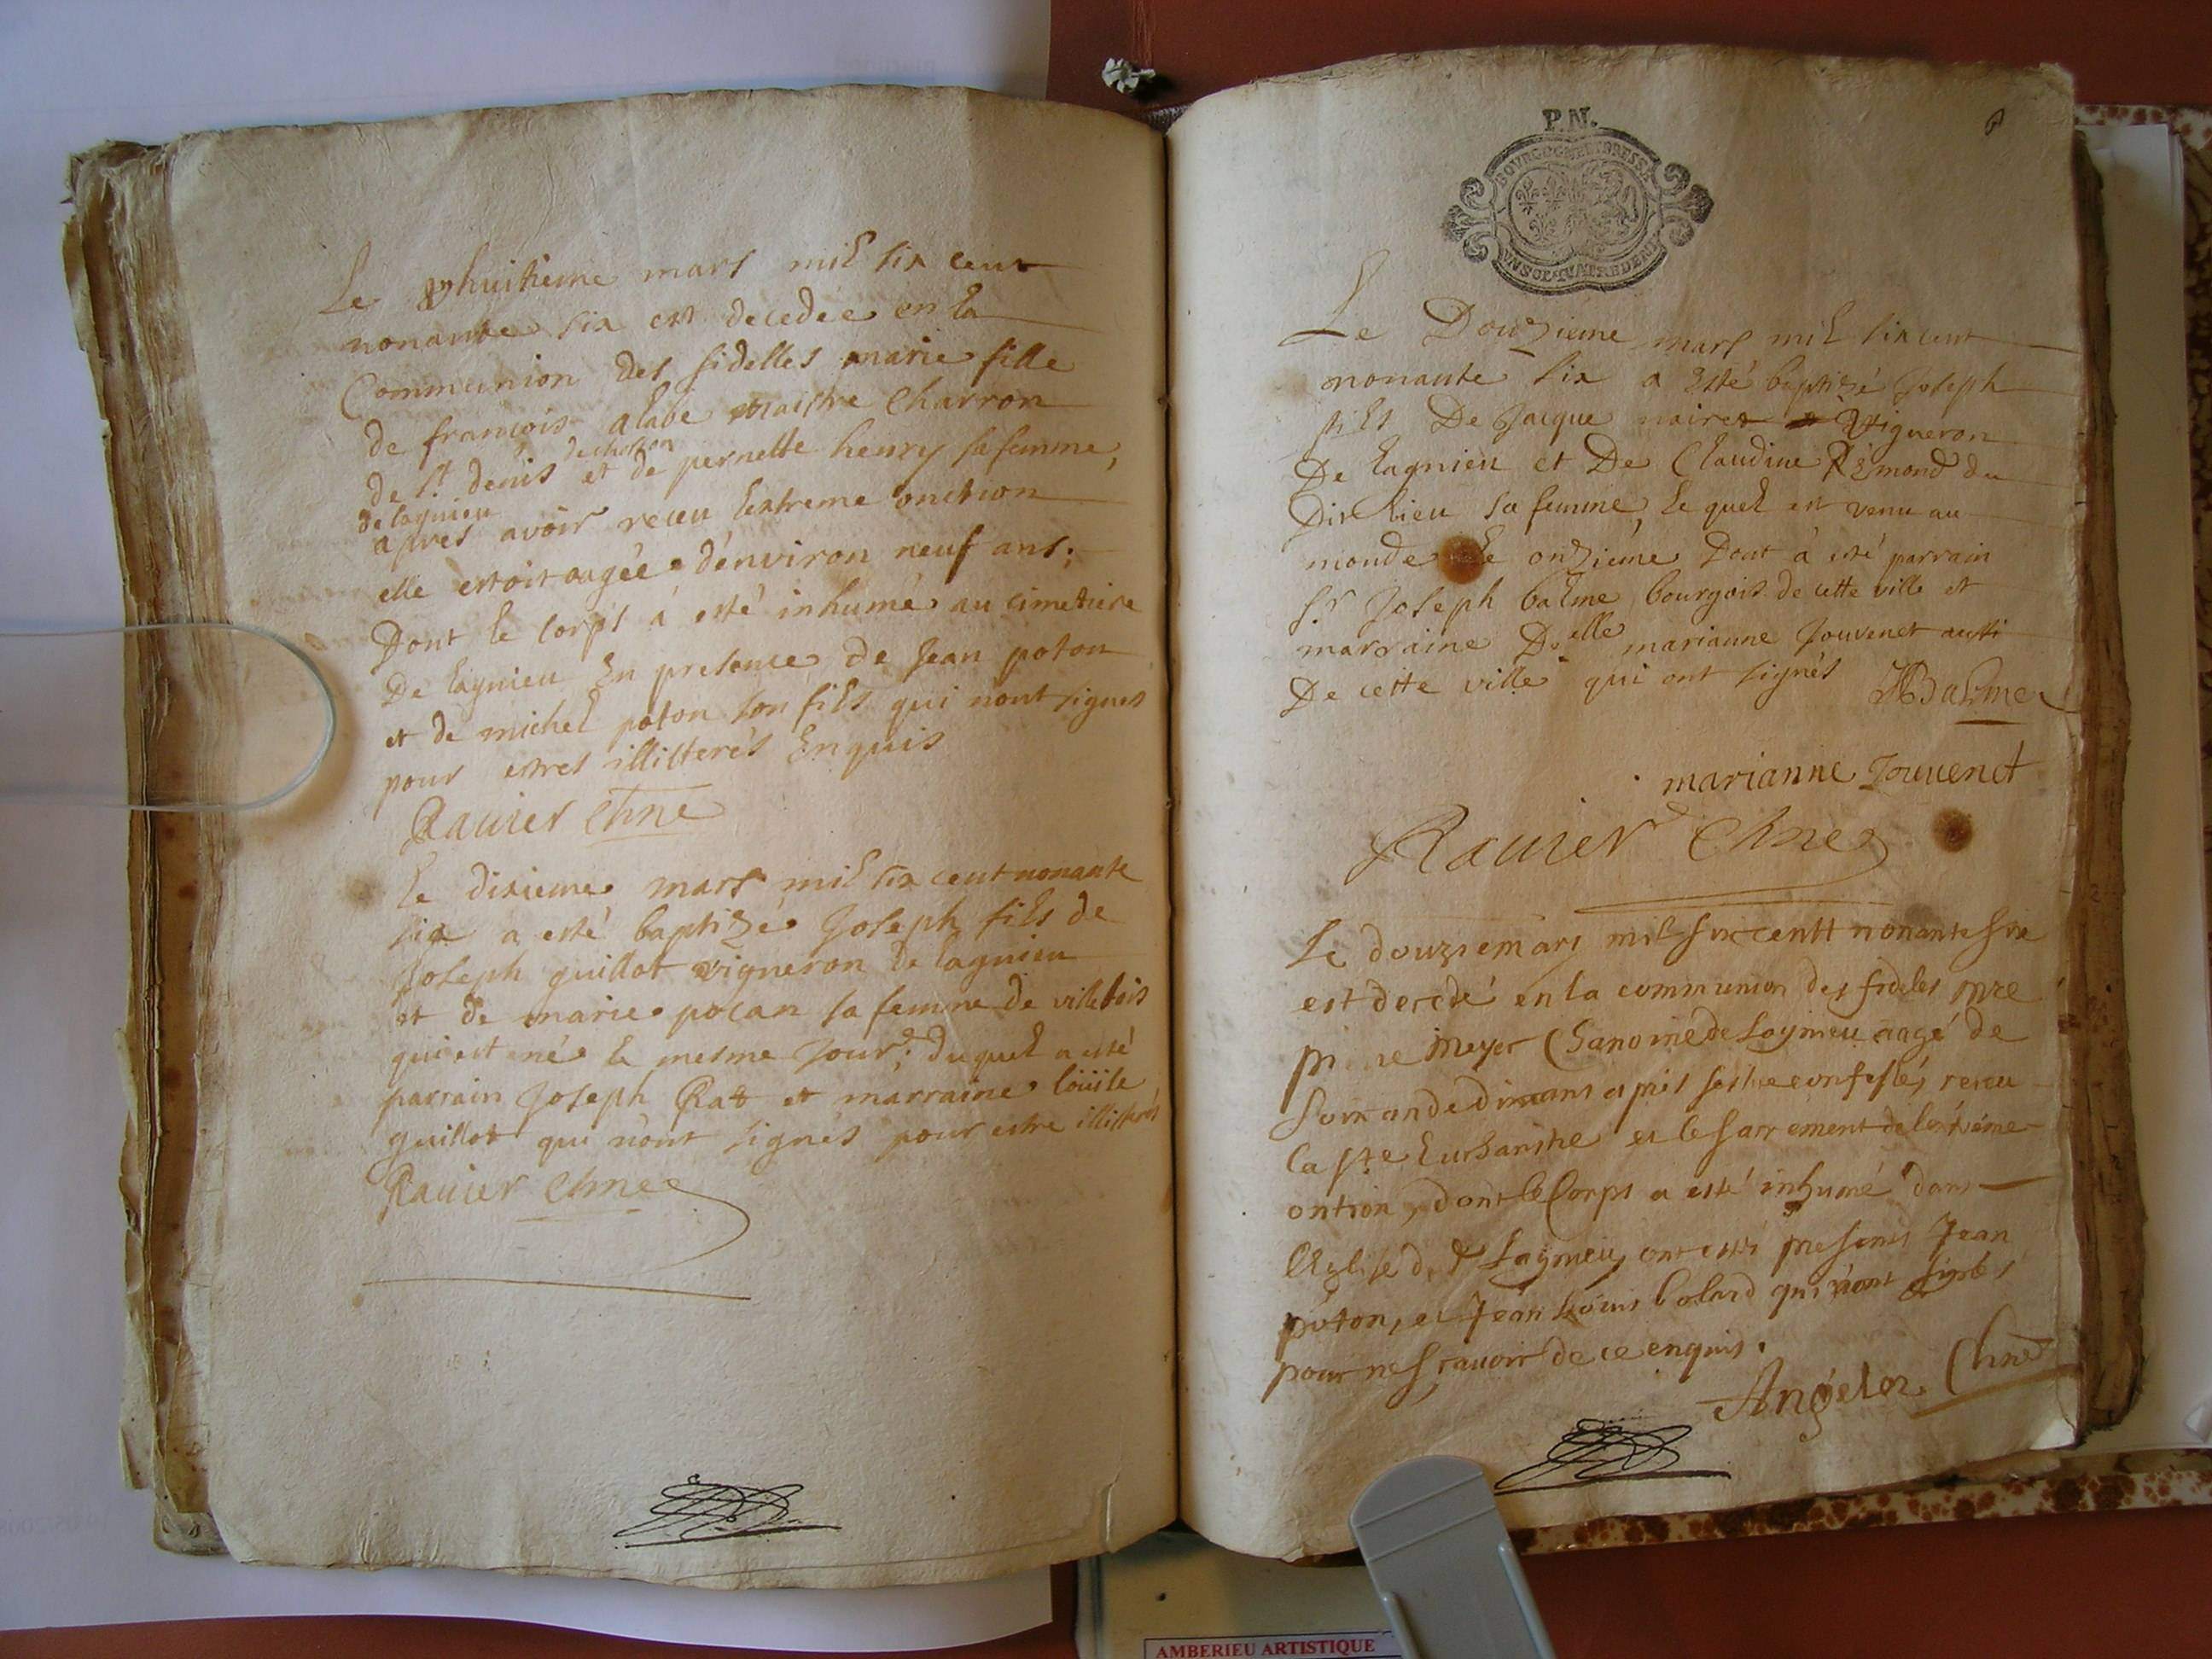 Le huitieme mars mil six cent
nonante six est decedée en la
Communion des fidelles marie fille
de françois alabe maistre Charron
de st denis de chosson et de pernette henry sa femme,
de lagnieu
apres avoir receu lextreme onction
elle estoit aagée d'environ neuf ans;
Dont le corps à esté inhumé au cimetiere
De lagnieu En presence de Jean poton
et de michel poton son fils qui nont signes
pour estres illitterés Enquis
Ravier Chne
Le dixieme mars mil six cent nonante
six a esté baptizé Joseph fils de
Joseph guillot vigneron de lagnieu
et de marie pocan sa femme de villebois
qui est né le mesme Jour; duquel a esté
parrain Joseph Rat et marraine loüise
guillot qui n'ont signés pour estre illitterés
Ravier Chne
P.N.
BOURGOGNE ET BRESSE
UN SOL QUATRE DEN
Le Douzieme mars mil six cent
nonante six a Esté baptizé Joseph
fils De Jacque naires Vigneron
De lagnieu et De Claudine Rémond du
Dit lieu sa femme, le quel est venu au
monde le onzième Dont à esté parrain
Sr Joseph balme bourgois de cette ville et
marraine Delle marianne Jouvenet aussi
De cette ville qui ont signés JBalme
marianne Jouvenet
Ravier Chne
Le douziemars mil six centt nonante six
est decedé en la communion des fideles mre
meyer Chanoine de Lagnieu aagé de
soixandedix ans apres sestre confessé, receu
la ste Eucharistie et le sacrement de lextréme
ontion, dont le Corps a esté inhumé dans
lEglise de Lagnieu, ont esté presents Jean
poton, et Jean Louis bolard qui n'ont signés
pour ne scavoir de ce enquis.
Angelot Chne
AMBERIEU ARTISTIQUE